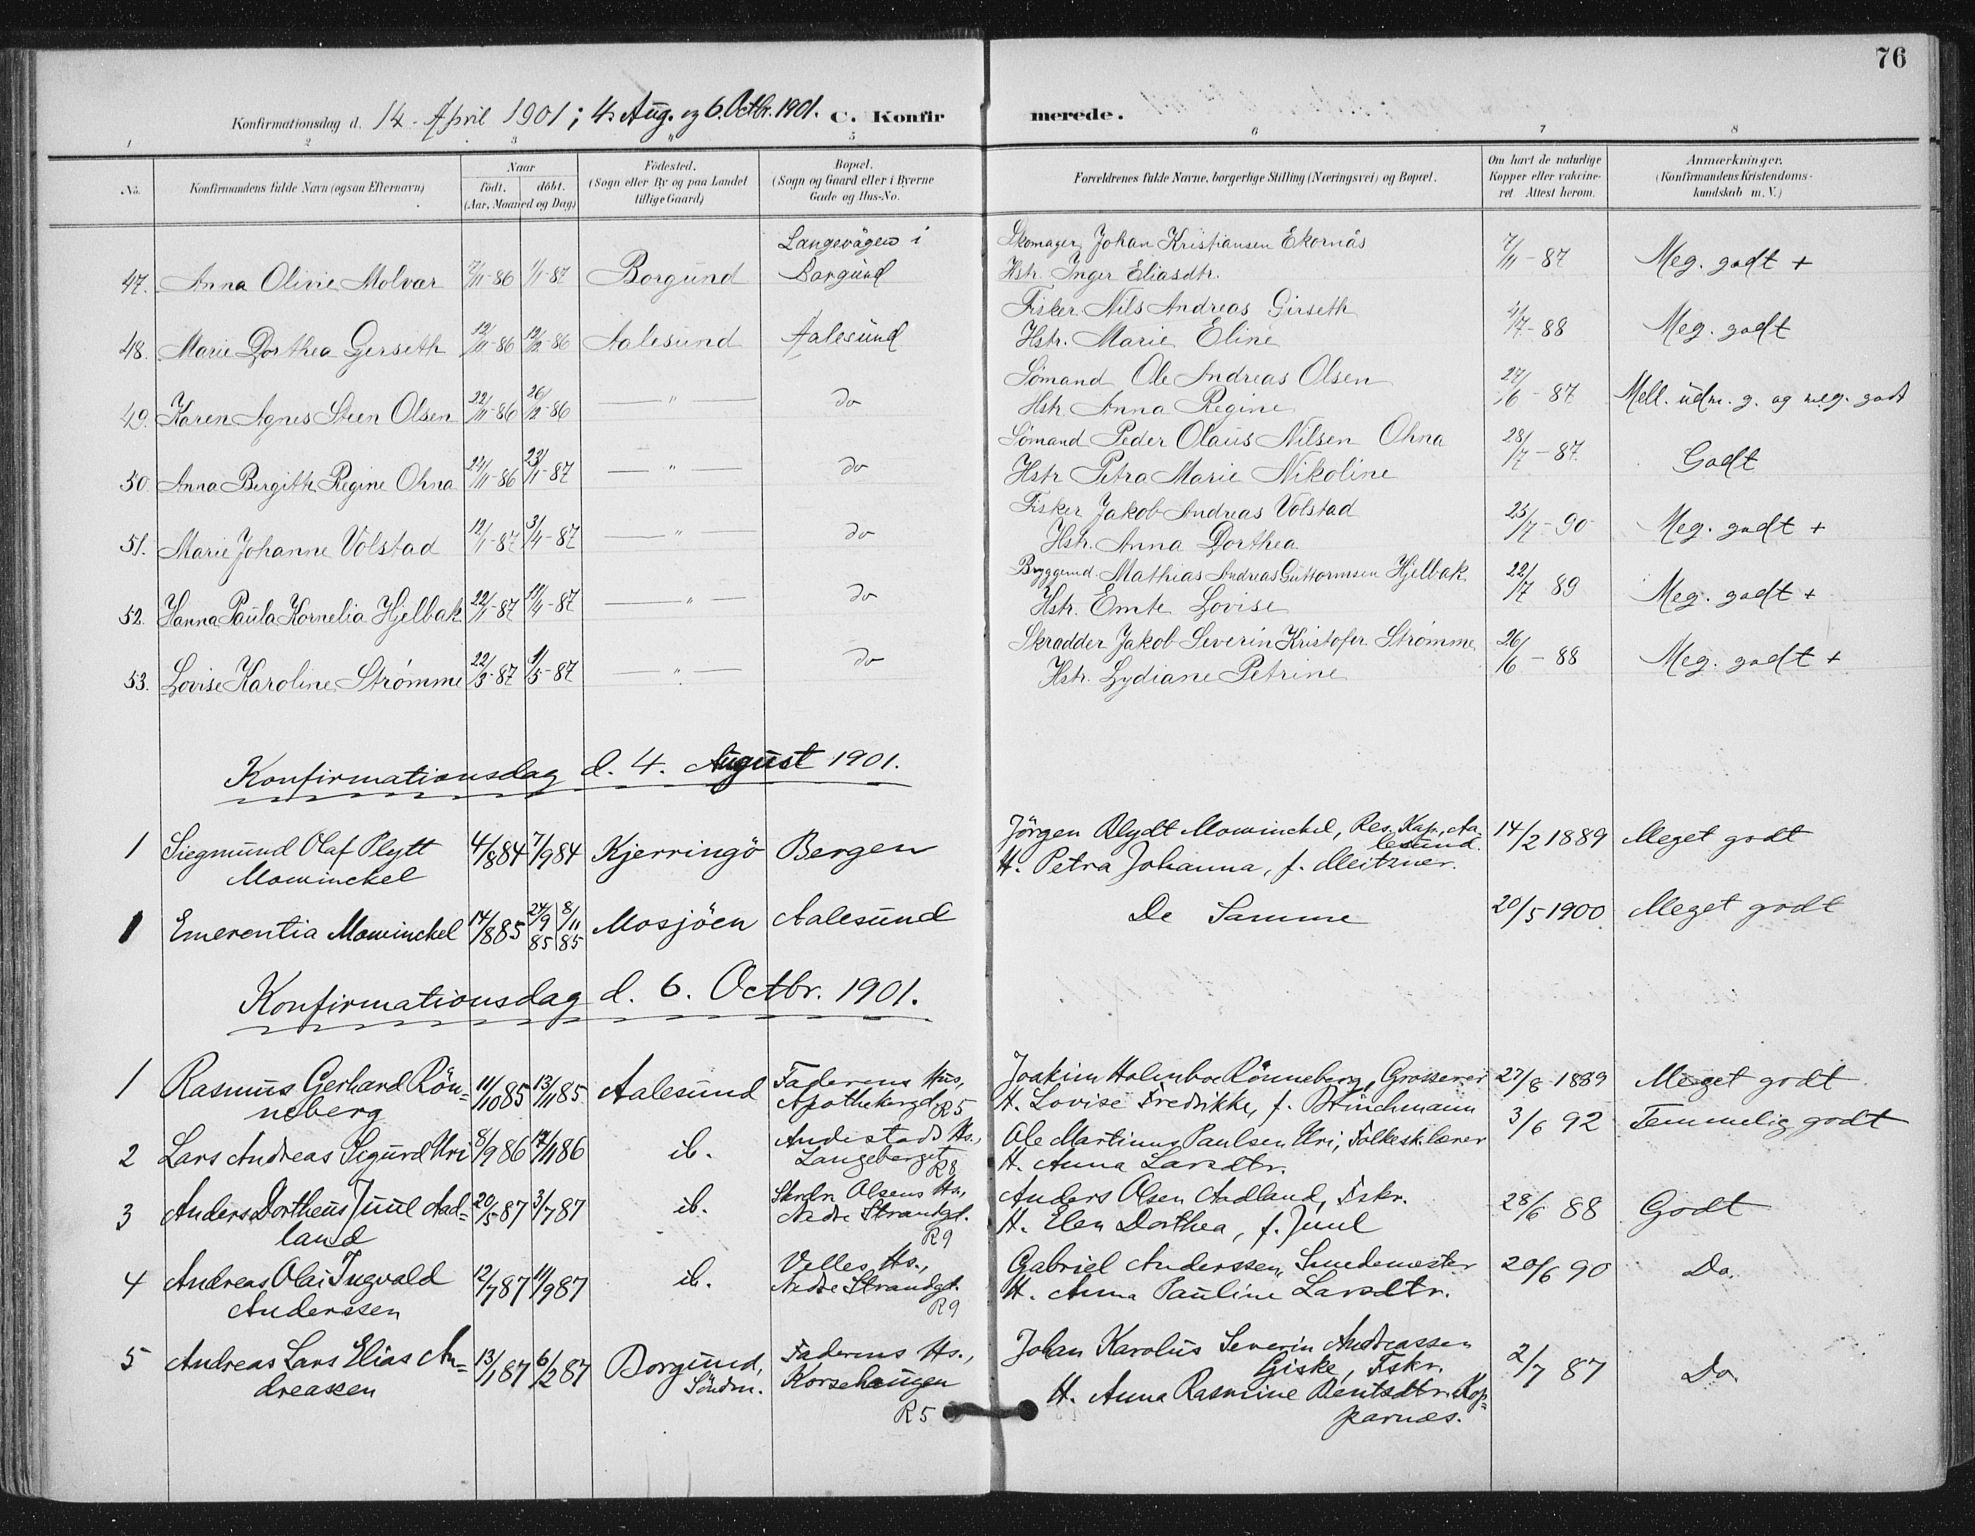 76
Konfirmationsdag d. 14. April 1901; 4. Aug. og 6. Octbr. 1901. C. Konfirmerede.
1 2 3 4 5 6 7 8
No. Konfirmandens fulde Navn (ogsaa Efternavn) Naar født. døbt. (Aar, Maaned og Dag) Fødested. (Sogn eller By og paa Landet tillige Gaard) Bopæl. (Sogn og Gaard eller i Byerne Gade og Hus-No. Forældrenes fulde Navne, borgerlige Stilling (Næringsvei) og Bopæl. Om havt de naturlige Kopper eller vakcineret. Attest herom. Anmærkninger. (Konfirmandens Kristendomskundskab m. V.)
Langevågen i Skomager Johan Kristiansen Ekornäs
47. Anna Olivie Molvær 7/11-86 1/1-87 Borgund Borgund Hstr. Inger Eliasdtr. 7/11-87 Meg. godt +
Fisker Nils Andreas Girseth
48. Marie Dorthea Gerseth 12/11-86 12/12-86 Aalesund Aalesund Hstr. Marie Eline 4/7-88 Meg. godt
Sømand Ole Andreas Olsen
49. Karen Agnes Steen Olsen 22/11-86 26/12-86 — " — do Hstr. Anna Regine 27/6-87 Mell. udm. g. og meg. godt
Sømand Peder Olaus Nilsen Ohna
50. Anna Bergith Regine Ohna 24/11-86 23/1-87 — " — do Hstr Petra Marie Nikoline 28/7-87 Godt
Fisker Jakob Andreas Volstad
51. Marie Johanne Volstad 12/1-87 3/4-87 — " — do Hstr. Anna Dorthea 23/7-90 Meg. godt +
Bryggemd. Mathias Andreas Guttormsen Hjelbak
52. Hanna Paula Kornelia Hjelbak 22/1-87 11/4-87 — " — do Hstr. Emte Lovise 22/7 89 Meg. godt +
Skrædder Jakob Severin Kristofer Strømme
53. Lovise Karoline Strømme 22/3-87 1/5-87 — " — do Hstr. Lydiane Petrine 26/6-88 Meg. godt +
Konfirmationsdag d. 4. August 1901.
1 Siegmund Olaf Plytt 4/8 84 7/9 84 Kjerringö Bergen Jörgen Blydt Mowinckel, Res. Kap., Aa- 14/2 1889 Meget godt
lesund.
Mowinckel H. Petra Johanna, f. Meitzner.
1 Emerentia Mowinckel 14/8 85 24/9 85 8/11 85 Mosjöen Aalesund De Samme 20/5 1900 Meget godt
Konfirmationsdag d. 6. Octbr. 1901.
1 Rasmus Gerhard Rön- 11/10 85 13/11 85 Aalesund Faderens Hus, Joakim Holmboe Rønneberg, Grosserer 27/8 1889 Meget godt
neberg Apothekergd. R 5 H. Lovise Fredrikke, f. Brinchmann
2 Lars Andreas Sigurd Uri 8/9 86 17/11 86 ib. Andestads Hs., Ole Martinus Paulsen Uri, Folkesk.lærer 3/6 92 Temmelig godt
Langeberget R8 H. Anna Larsdtr.
3 Anders Dortheus Juul Aad- 20/5 87 3/7 87 ib. Olsens Hs., Anders Olsen Aadland, Fskr. 28/6 88 Godt
land Nedre Strandgt. R9 H. Elen Dorthea, f. Juul
4 Andreas Olai Ingvald 12/7 87 11/9 87 ib. Velles Hs., Gabriel Anderssen, Smedemester 20/6 90 Do.
Anderssen Nedre Strandgt. R9 H. Anna Pauline Larsdtr.
5 Andreas Lars Elias An- 13/1 87 6/2 87 Borgund, Faderens Hs., Johan Karolus Severin Andreassen 2/7 87 Do
dreassen Söndm. Korsehaugen Giske, Fskr.
R 5 H. Anna Rasmine Bentsdtr. Kop-
parnæs.